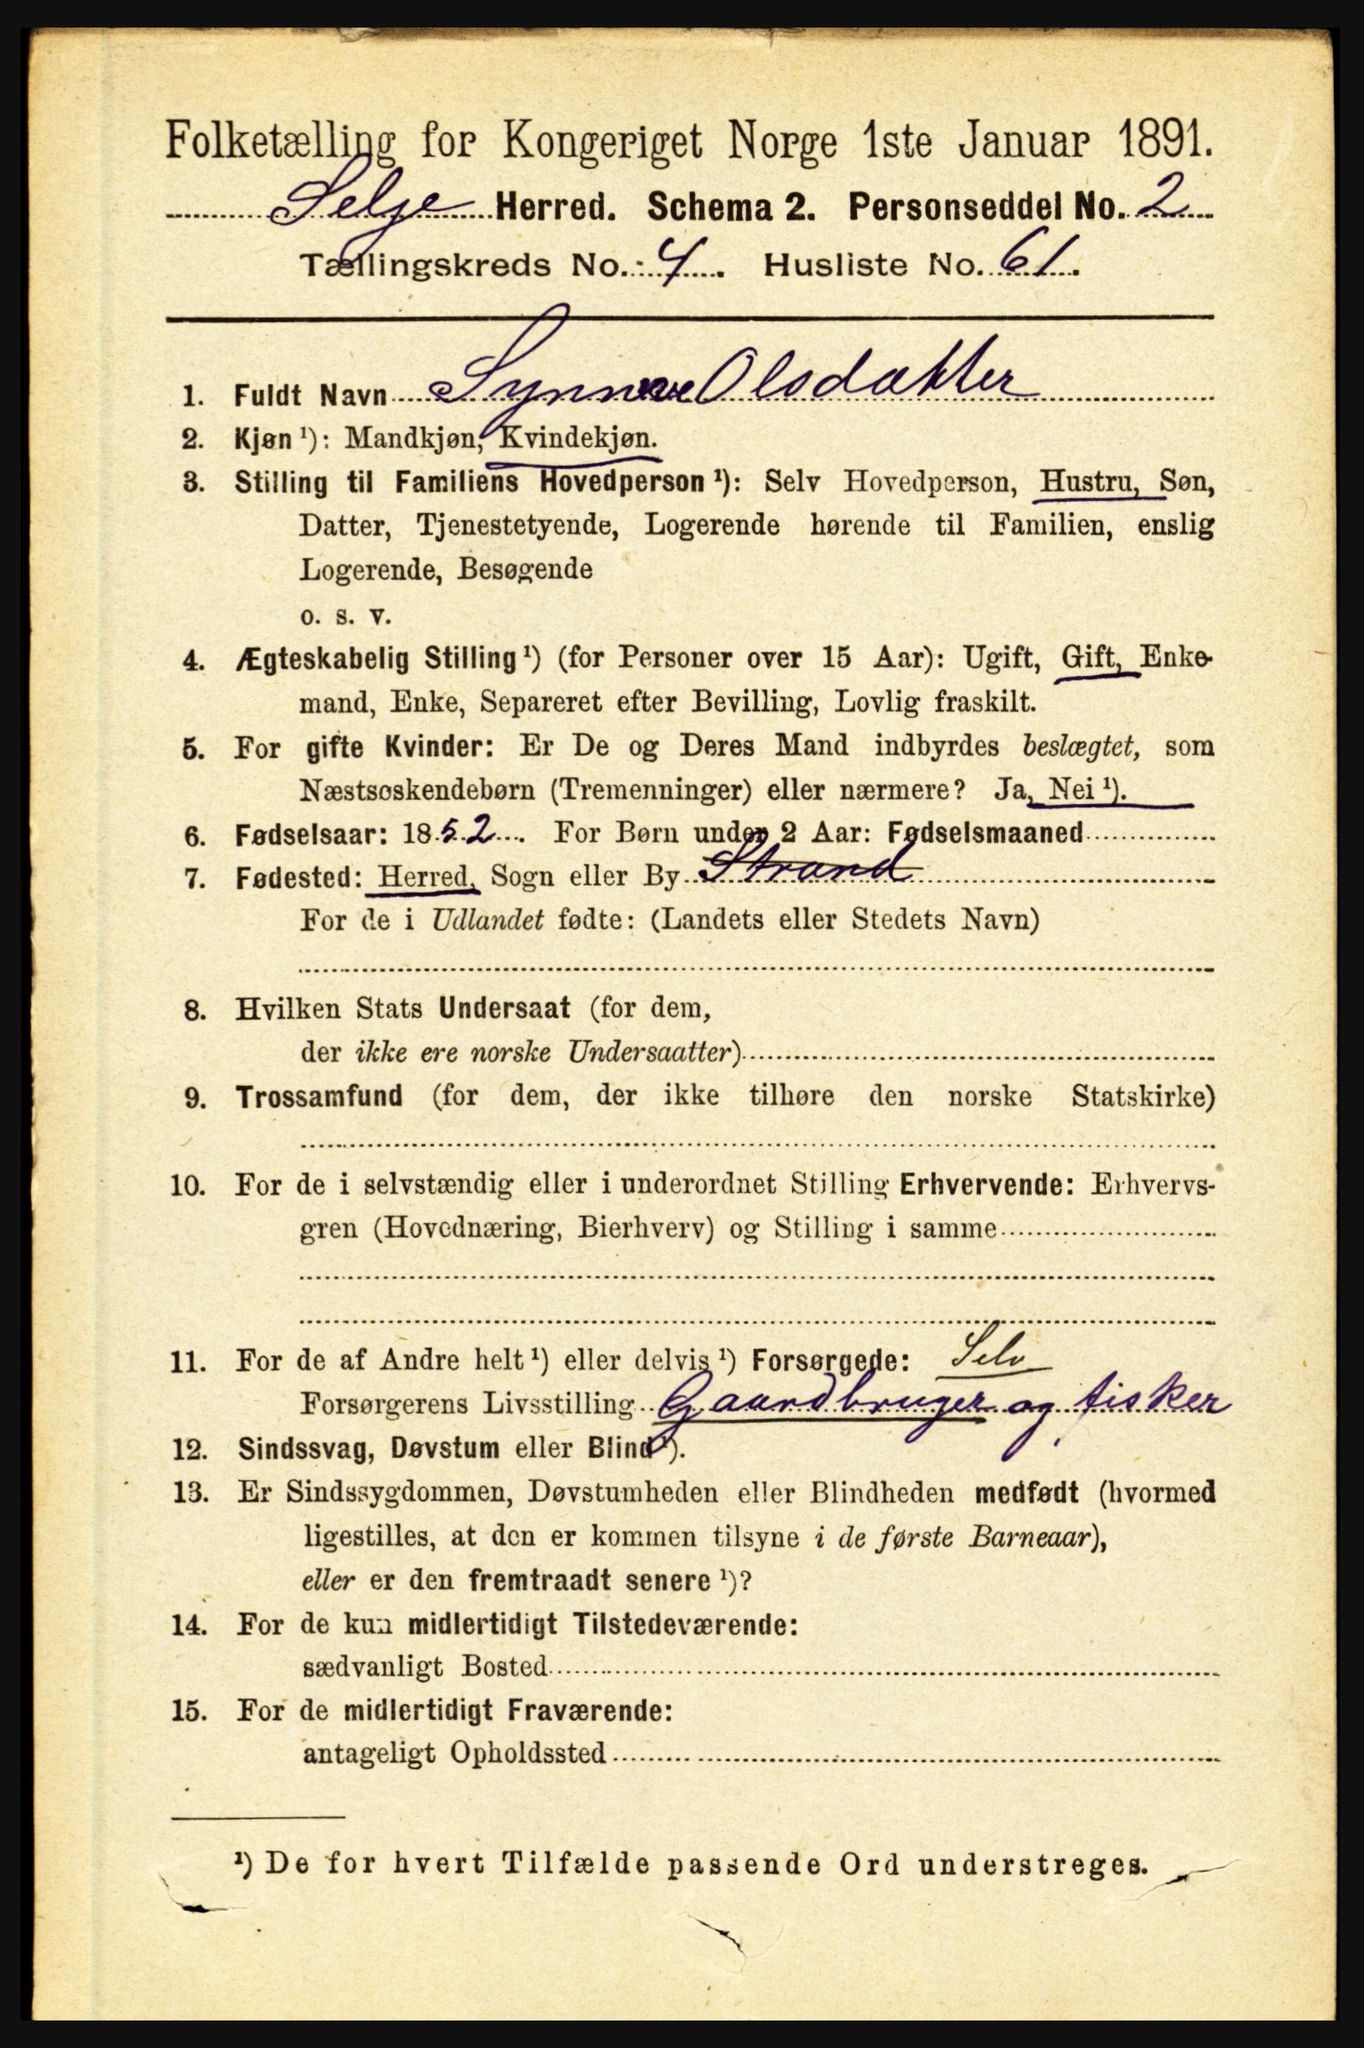 Folketælling for Kongeriget Norge 1ste Januar 1891.
Selje Herred. Schema 2. Personseddel No. 2
Tællingskreds No. 4. Husliste No. 61.
1. Fuldt Navn Synneve Olsdatter
2. Kjøn¹): Mandkjøn, Kvindekjøn.
3. Stilling til Familiens Hovedperson¹): Selv Hovedperson, Hustru, Søn,
Datter, Tjenestetyende, Logerende hørende til Familien, enslig
Logerende, Besøgende
o. s. v.
4. Ægteskabelig Stilling¹) (for Personer over 15 Aar): Ugift, Gift, Enke-
mand, Enke, Separeret efter Bevilling, Lovlig fraskilt.
5. For gifte Kvinder: Er De og Deres Mand indbyrdes beslægtet, som
Næstsøskendebørn (Tremenninger) eller nærmere? Ja, Nei¹).
6. Fødselsaar: 1852. For Børn under 2 Aar: Fødselsmaaned
7. Fødested: Herred, Sogn eller By Strand
For de i Udlandet fødte: (Landets eller Stedets Navn)
8. Hvilken Stats Undersaat (for dem,
der ikke ere norske Undersaatter)
9. Trossamfund (for dem, der ikke tilhøre den norske Statskirke)
10. For de i selvstændig eller i underordnet Stilling Erhvervende: Erhvervs-
gren (Hovednæring, Bierhverv) og Stilling i samme
11. For de af Andre helt¹) eller delvis¹) Forsørgede: Selv
Forsørgerens Livsstilling Gaardbruger og fisker
12. Sindssvag, Døvstum eller Blind¹).
13. Er Sindssygdommen, Døvstumheden eller Blindheden medfødt (hvormed
ligestilles, at den er kommen tilsyne i de første Barneaar),
eller er den fremtraadt senere¹)?
14. For de kun midlertidigt Tilstedeværende:
sædvanligt Bosted
15. For de midlertidigt Fraværende:
antageligt Opholdssted
¹) De for hvert Tilfælde passende Ord understreges.